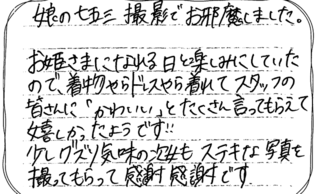 娘の七五三撮影でお邪魔しました。
お姫さまになれる日と楽しみにしていた
ので、着物やらドレスやら着れてスタッフの
皆さんに「かわいい」とたくさん言ってもらえて
嬉しかったようです!!
少しグズリ気味の次女もステキな写真を
撮ってもらって感謝感謝です